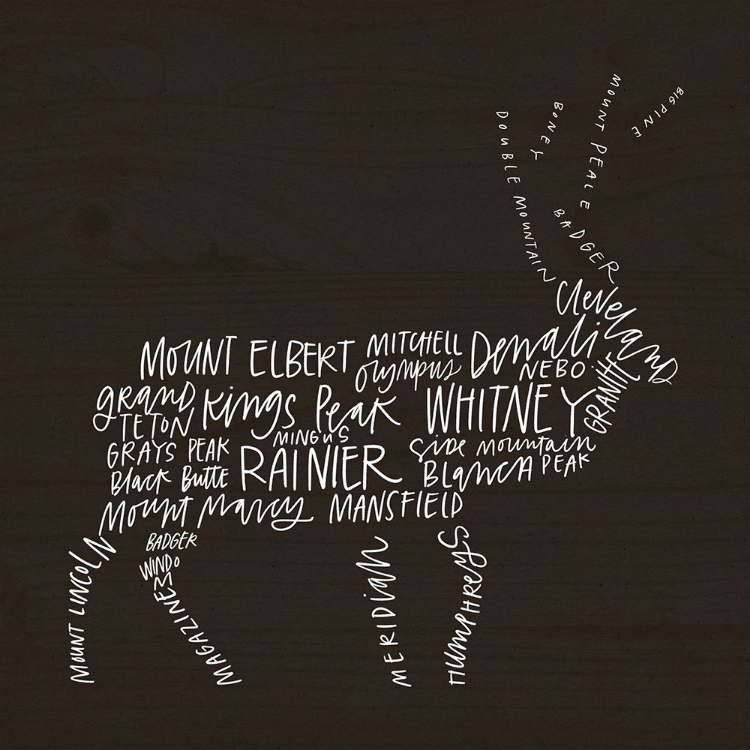 BIG PINE
MOUNT PEALE
BONEY
DOUBLE MOUNTAIN
BADGER
Cleveland
MOUNT ELBERT
MITCHELL
Olympus
Denali
NEBO
GRANITE
grand
TETON
Kings Peak
WHITNEY
MINGUS
GRAYS PEAK
Black Butte
RAINIER
Side mountain
Blanca PEAK
Mount Marcy
MANSFIELD
MOUNT LINCOLN
BADGER
WINDOM
MAGAZINE
MERIDIAN
HUMPHREYS